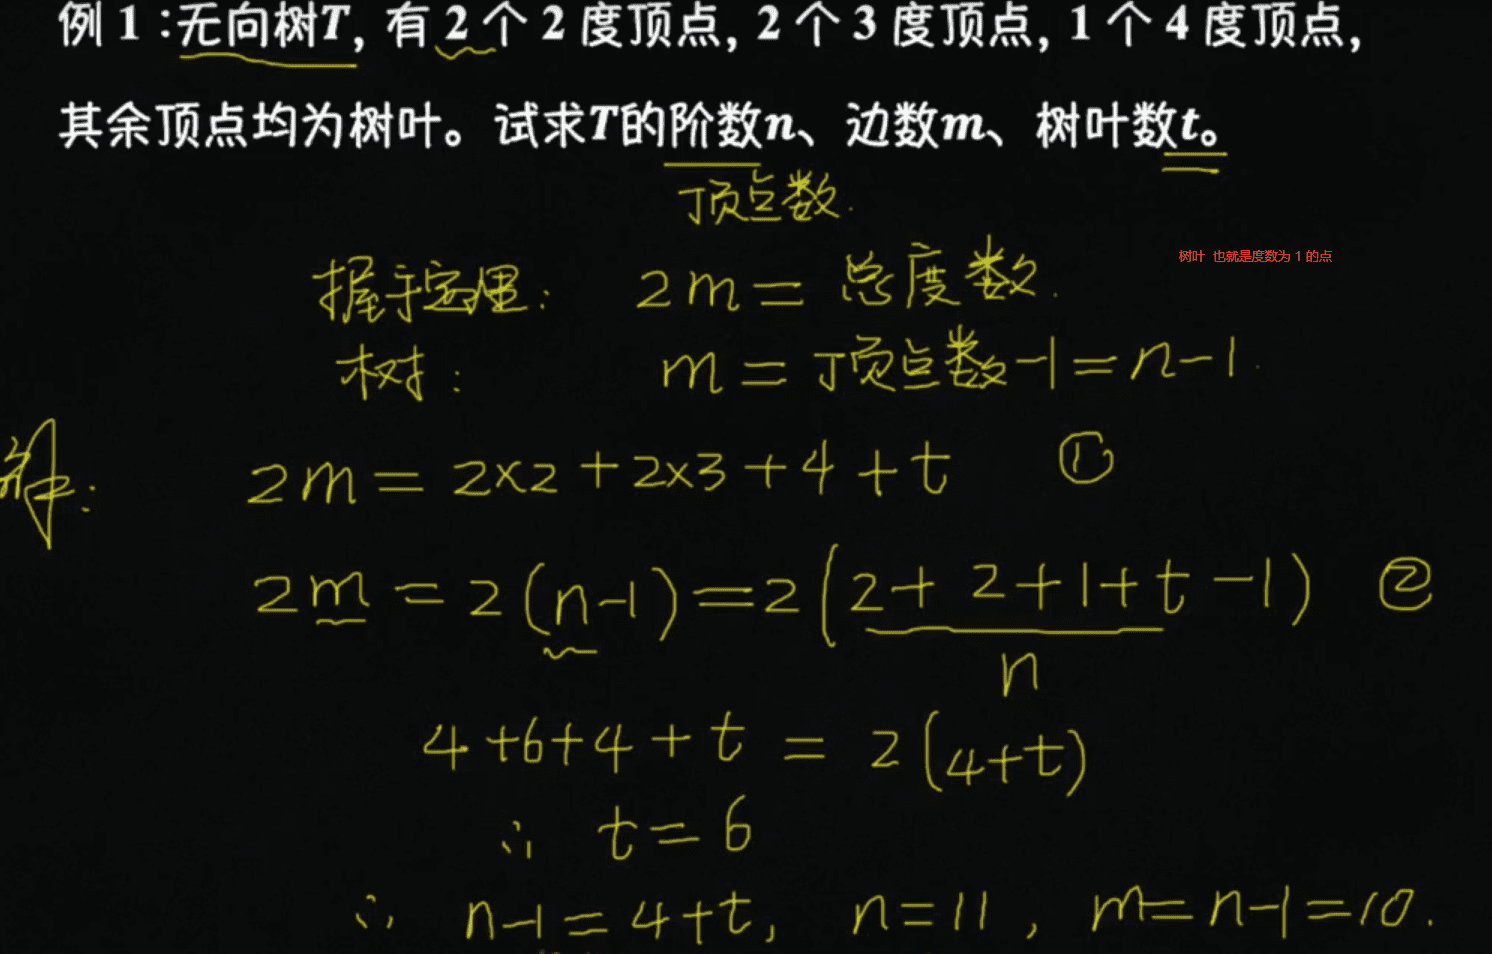 例 1 :无向树T, 有 2 个 2 度顶点, 2 个 3 度顶点, 1 个 4 度顶点,
其余顶点均为树叶。试求T的阶数n、边数m、树叶数t。
顶点数.
树叶 也就是度数为 1 的点
握手定理: 2m = 总度数.
树: m = 顶点数-1 = n-1.
解:
2m = 2×2 + 2×3 + 4 + t ①
2m = 2(n-1) = 2(2+2+1+t-1) ②
n
4+6+4+t = 2(4+t)
∴ t = 6
∴ n-1 = 4+t, n=11, m=n-1=10.